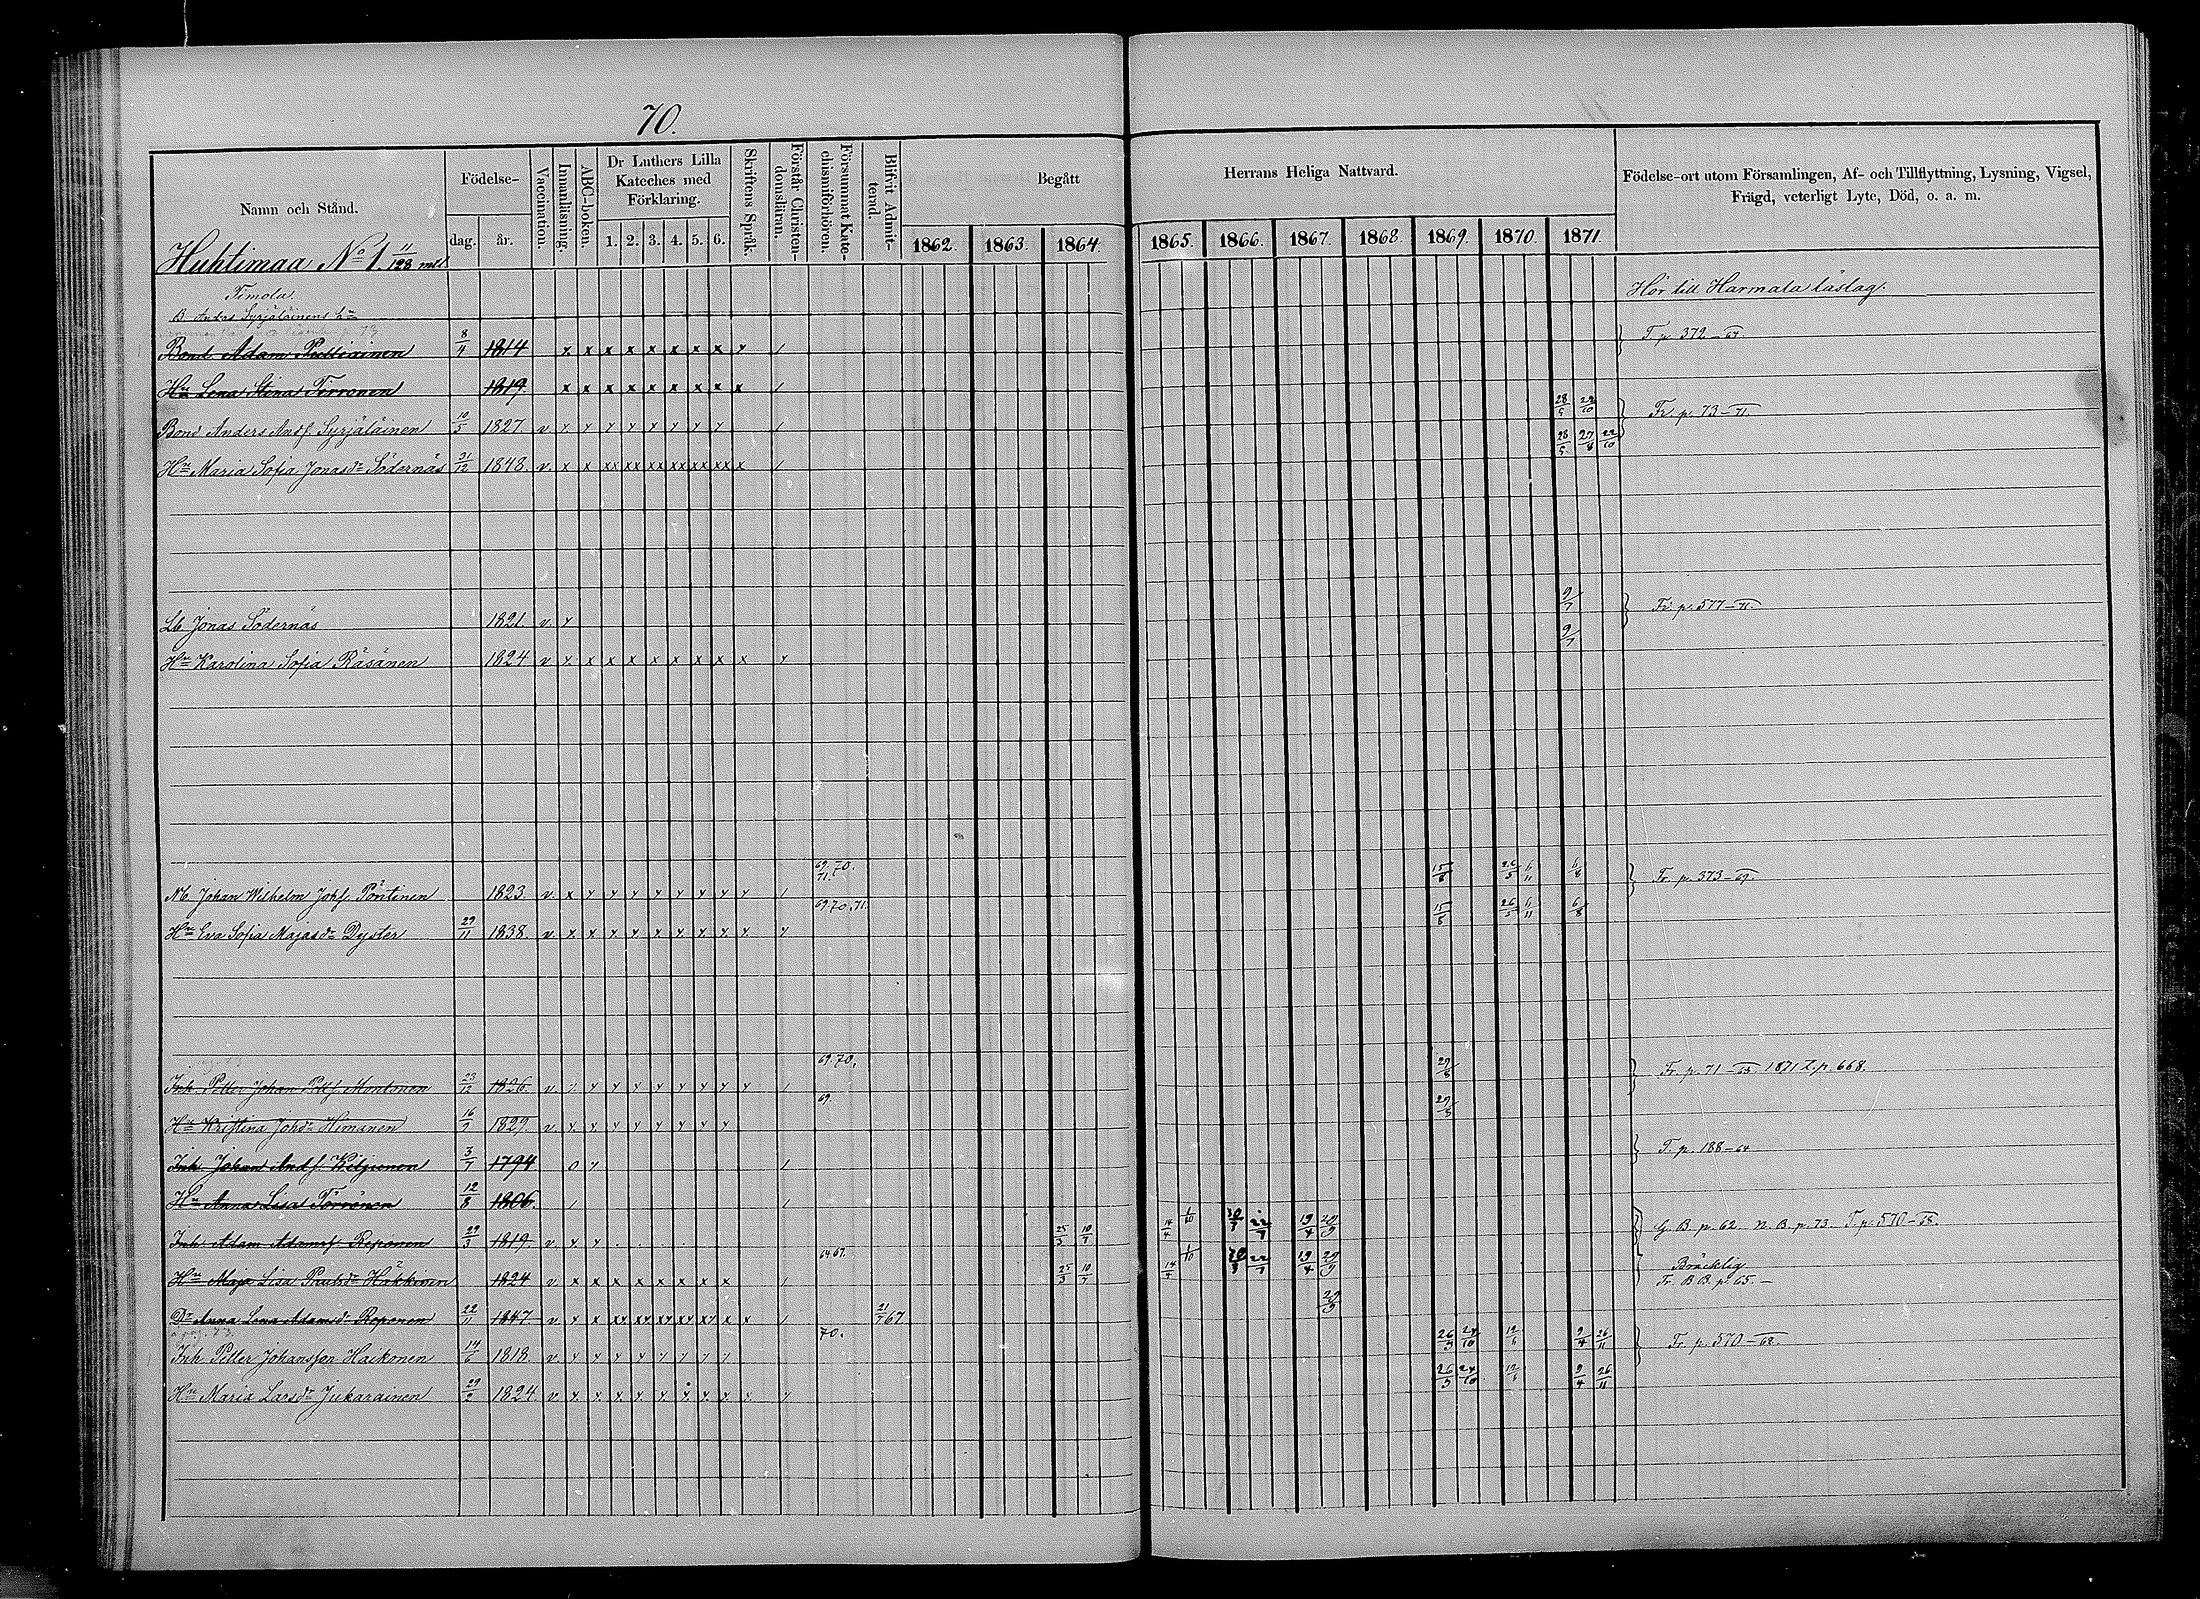 70.
Namn och Stånd.
Födelse-
dag.
år.
Vaccination.
Innanläsning.
ABC-boken.
Dr Luthers Lilla
Kateches med
Förklaring.
1. 2. 3. 4. 5. 6.
Skriftens Språk.
Förstår Christen-
domsläran.
Försummat Kate-
chismiförhören.
Blifvit Admit-
terad.
Begått
Herrans Heliga Nattvard.
1862. 1863. 1864 1865. 1866. 1867. 1868. 1869. 1870. 1871.
Födelse-ort utom Församlingen, Af- och Tillflyttning, Lysning, Vigsel,
Frägd, veterligt Lyte, Död, o. a. m.
Huhtimaa No 1. 11/128 mtl.
Timola.
Hör till Harmala läslag.
B. Anders Syrjäläinens hn
Bond. Adam Pulliainen 8/4 1814 x x x x x x x x y / T. p. 372-64
Hu Lena Stina Tirronen 1819. x x x x x x x x x /
Bond Anders Andf. Syrjäläinen 10/5 1827 v y y y y y y y y / 28/5 22/10 Fr. p. 73-71.
Hu Maria Sofia Jonasdr Södernäs 31/12 1848 v. x x xx xx xx xx xx xx x / 28/5 27/8 22/10
Lb Jonas Södernäs 1821. v. y 9/7 Fr. p. 577-71.
Hu Karolina Sofia Räsänen 1824 v y x x x x x x x x y 9/7
Nb Johan Wilhelm Johf. Pöntinen 1823. v. x y y y y y y y y / 69. 70. 71. 15/8 26/5 6/11 6/8 Fr. p. 373-69.
Hu Eva Sofia Majasdr Dyster 29/11 1838. v. x x x x x x x y y y 69. 70. 71. 15/8 26/5 6/11 6/8
Inh. Petter Johan Pettf Montonen 23/12 1826. v. y y y y y y y y y / 69. 70. 29/8 Fr. p. 71-65. 1871 T. p. 668.
Hu Kristina Johdr Himanen 16/9 1829. v. y y y y y y y y 69. 29/8
Inh. Johan Andf. Kiljunen 3/7 1794 0 y / T. p. 188-64
Hu Anna Lisa Törrönen 12/8 1806. / /
Inh. Adam Adamsf. Reponen 29/3 1819. v. y y 25/3 10/7 14/4 1/10 30/3 22/7 19/4 29/9 G. B. p. 62. N. B. p. 73. T. p. 570-68.
Hu Maja Lisa Paulsdr Häkkinen 1824 v. x x x x x x x x / 64 67. 25/3 10/7 14/4 1/10 30/3 22/7 19/4 29/9 Bräcklig
Fr. B. B. p. 65.-
Dr Anna Lena Adamsdr Reponen 22/11 1847 v. x x xy xy xy xy xy x x / 21/7 67 29/9
Inh Petter Johansson Haikonen 14/6 1818. v y y y y y y y y 70. 26/9 24/10 12/6 9/4 26/11 Fr. p. 570-68.
Hu Maria Larsdr Jukarainen 29/2 1824. v y y y y y y y y y y 26/9 24/10 12/6 9/4 26/11